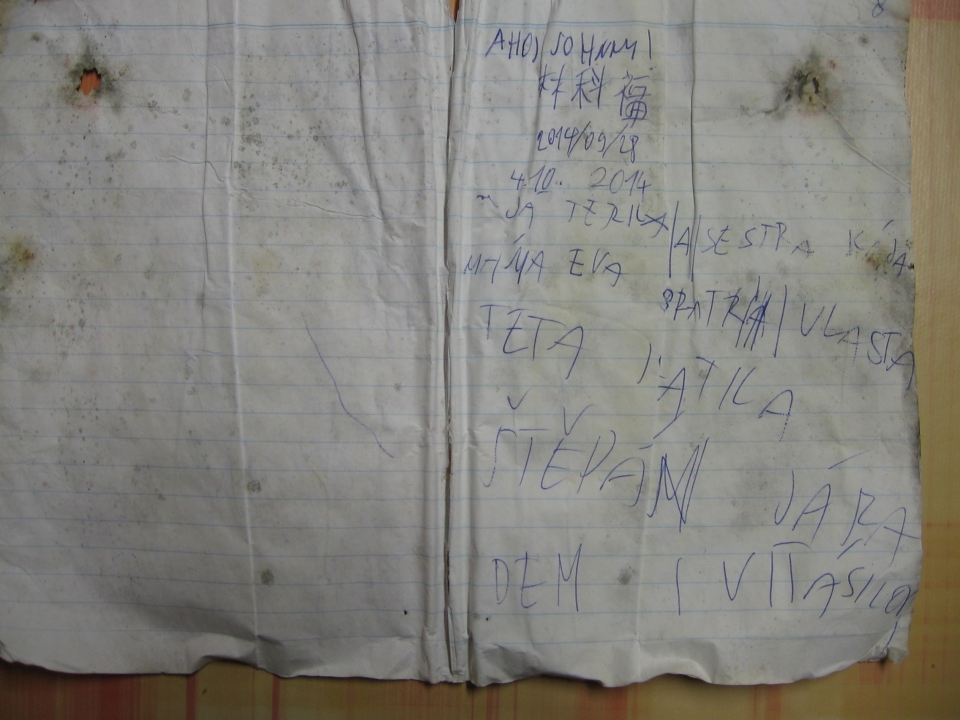 8
AHOJ JOHNNY!
林科
2014/09/28
4.10. 2014
JÁ TERKA A SESTRA KÁJA
MÁMA EVA BRATR VLASTA
TETA KATKA
ŠTĚPÁN JÁRA
DEM I VITÁSKO